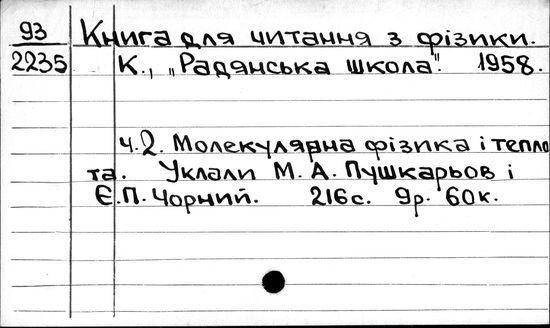 93 Книга для читання з фізики.
2235 К., „Радянська школа". 1958.
ч.2. Молекулярна фізика і тепло
та. Уклали М. А. Пушкарьов і
Є.П. Чорний. 216с. 9р. 60к.